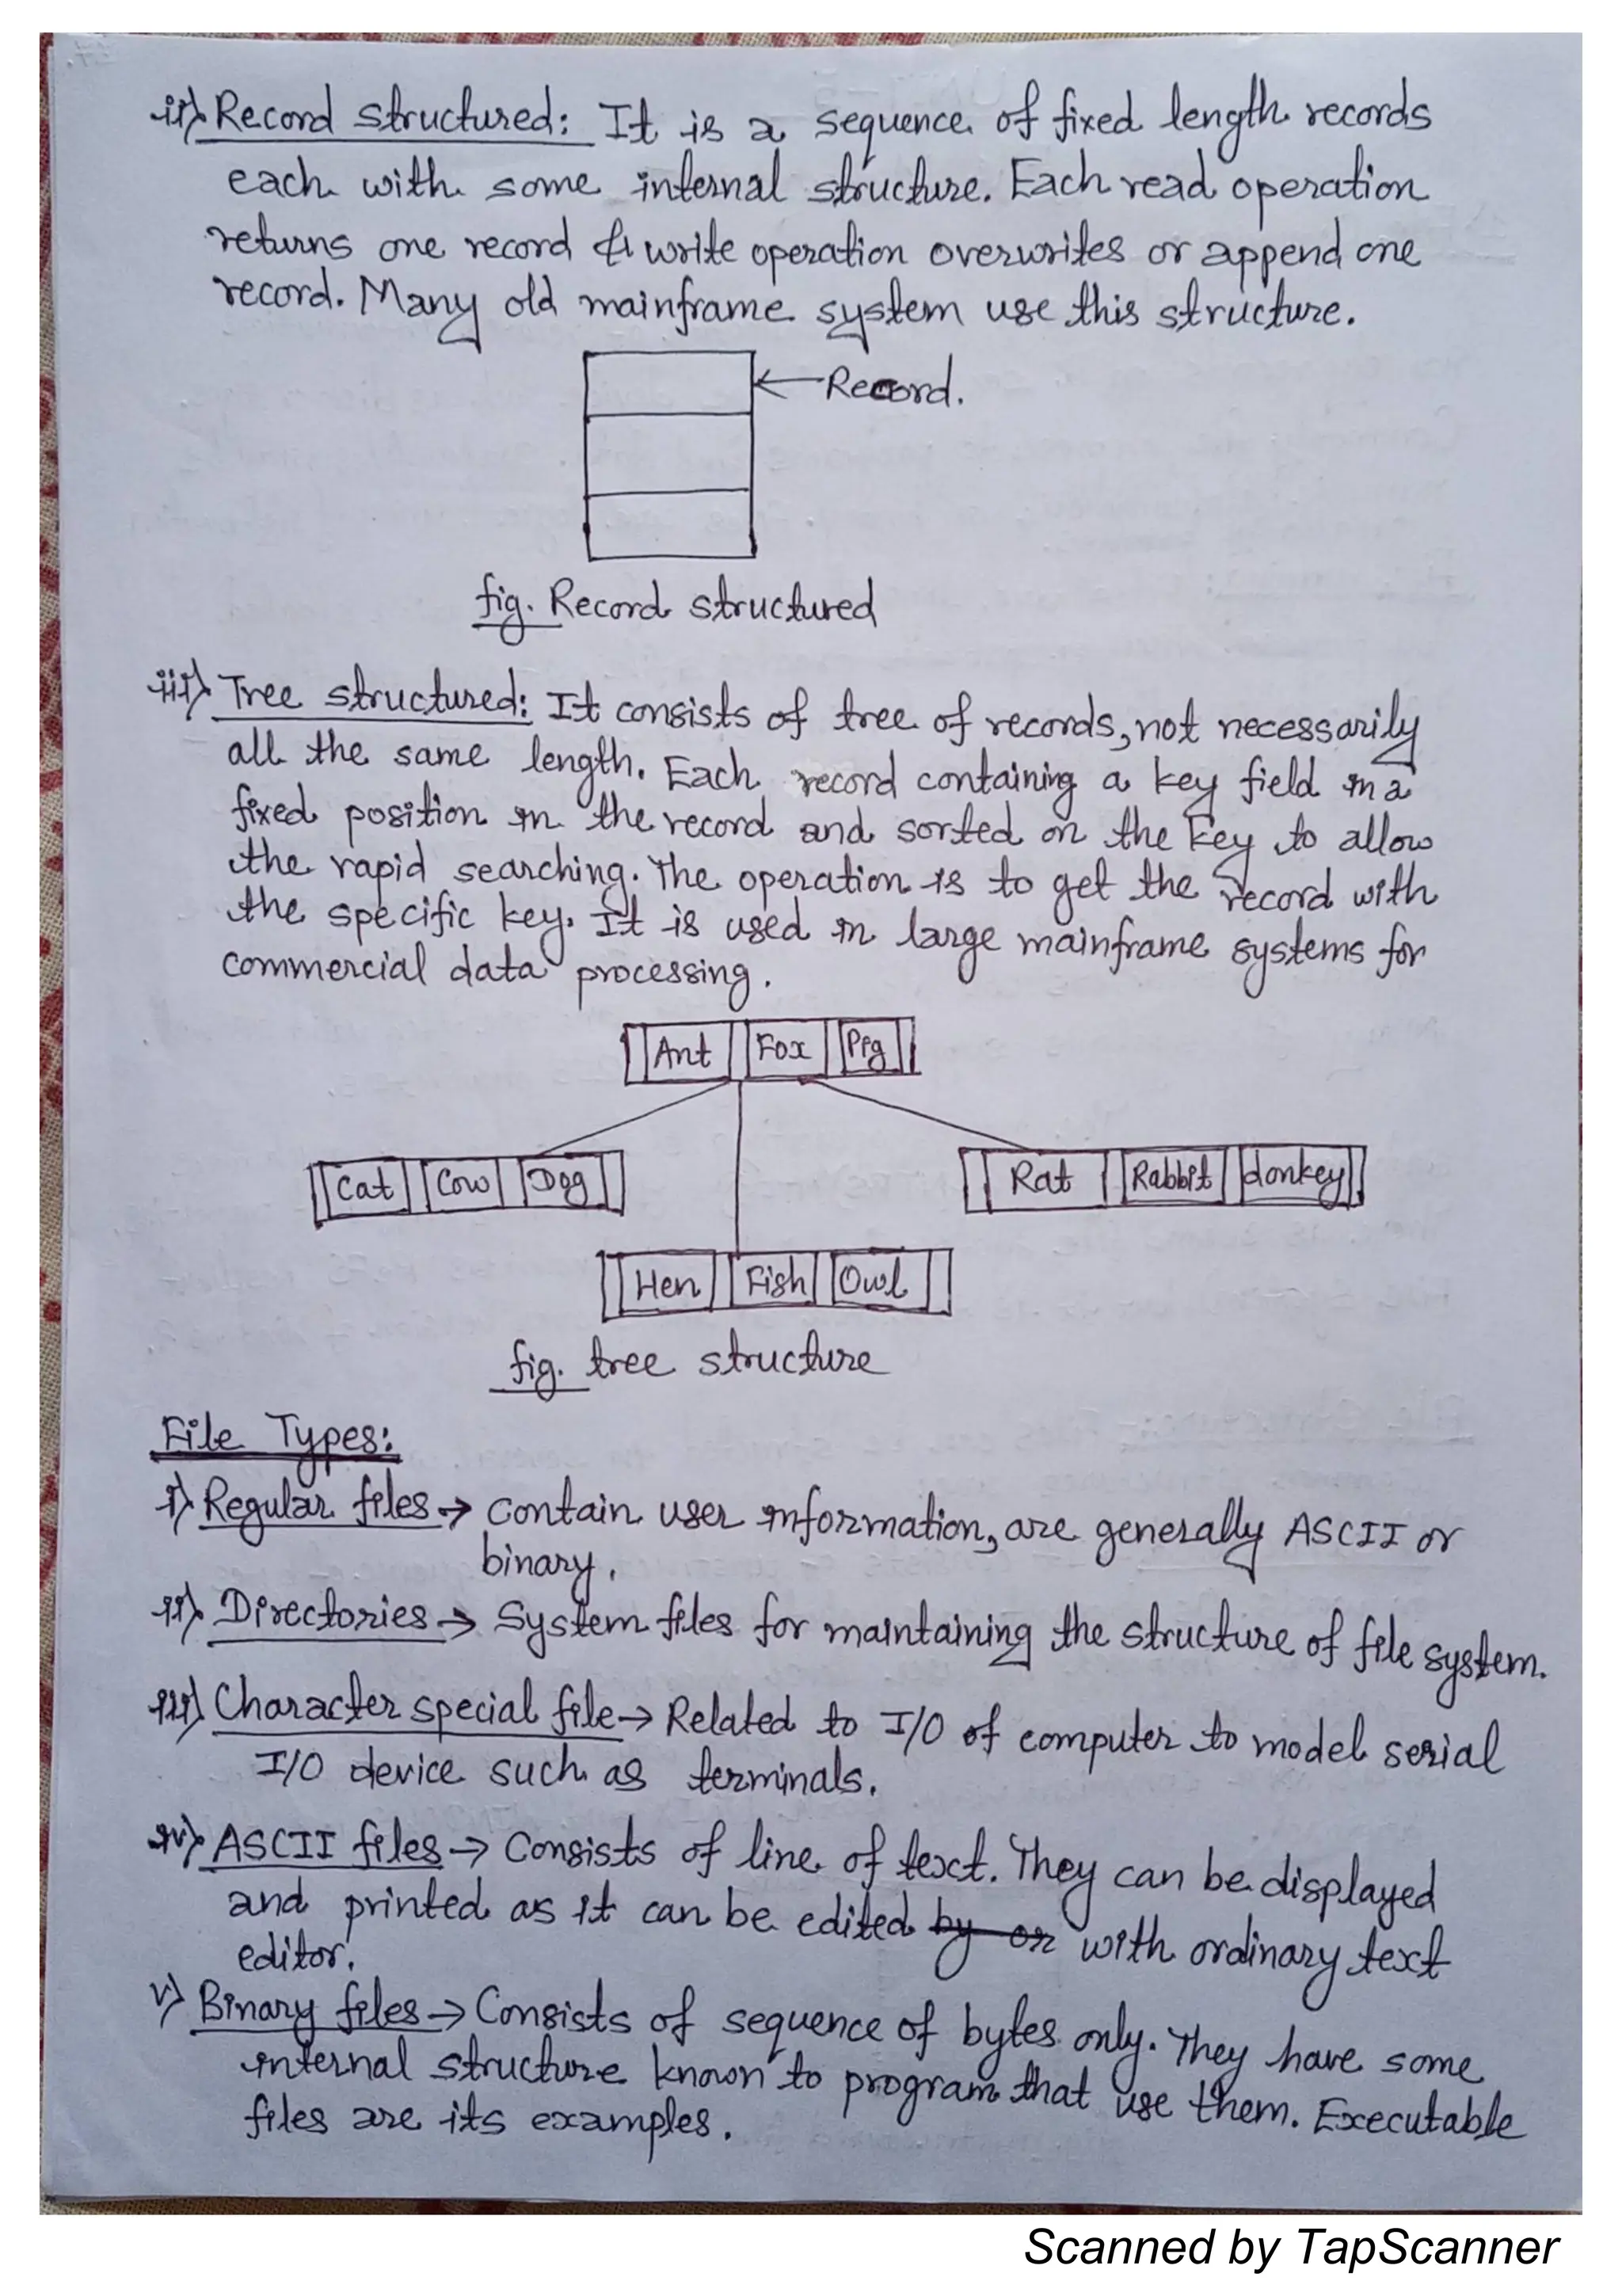 ii) Record structured: It is a sequence of fixed length records
each with some internal structure. Each read operation
returns one record & write operation overwrites or append one
record. Many old mainframe system use this structure.
← Record.
fig. Record structured
iii) Tree structured: It consists of tree of records, not necessarily
all the same length. Each record containing a key field in a
fixed position in the record and sorted on the key to allow
the rapid searching. The operation is to get the record with
the specific key. It is used in large mainframe systems for
commercial data processing.
Ant Fox Pig
Cat Cow Dog Rat Rabbit donkey
Hen Fish Owl
fig. tree structure
File Types:
i) Regular files → contain user information, are generally ASCII or
binary.
ii) Directories → System files for maintaining the structure of file system.
iii) Character special file → Related to I/O of computer to model serial
I/O device such as terminals.
iv) ASCII files → Consists of line of text. They can be displayed
and printed as it can be edited by or with ordinary text
editor.
v) Binary files → Consists of sequence of bytes only. They have some
internal structure known to program that use them. Executable
files are its examples.
Scanned by TapScanner